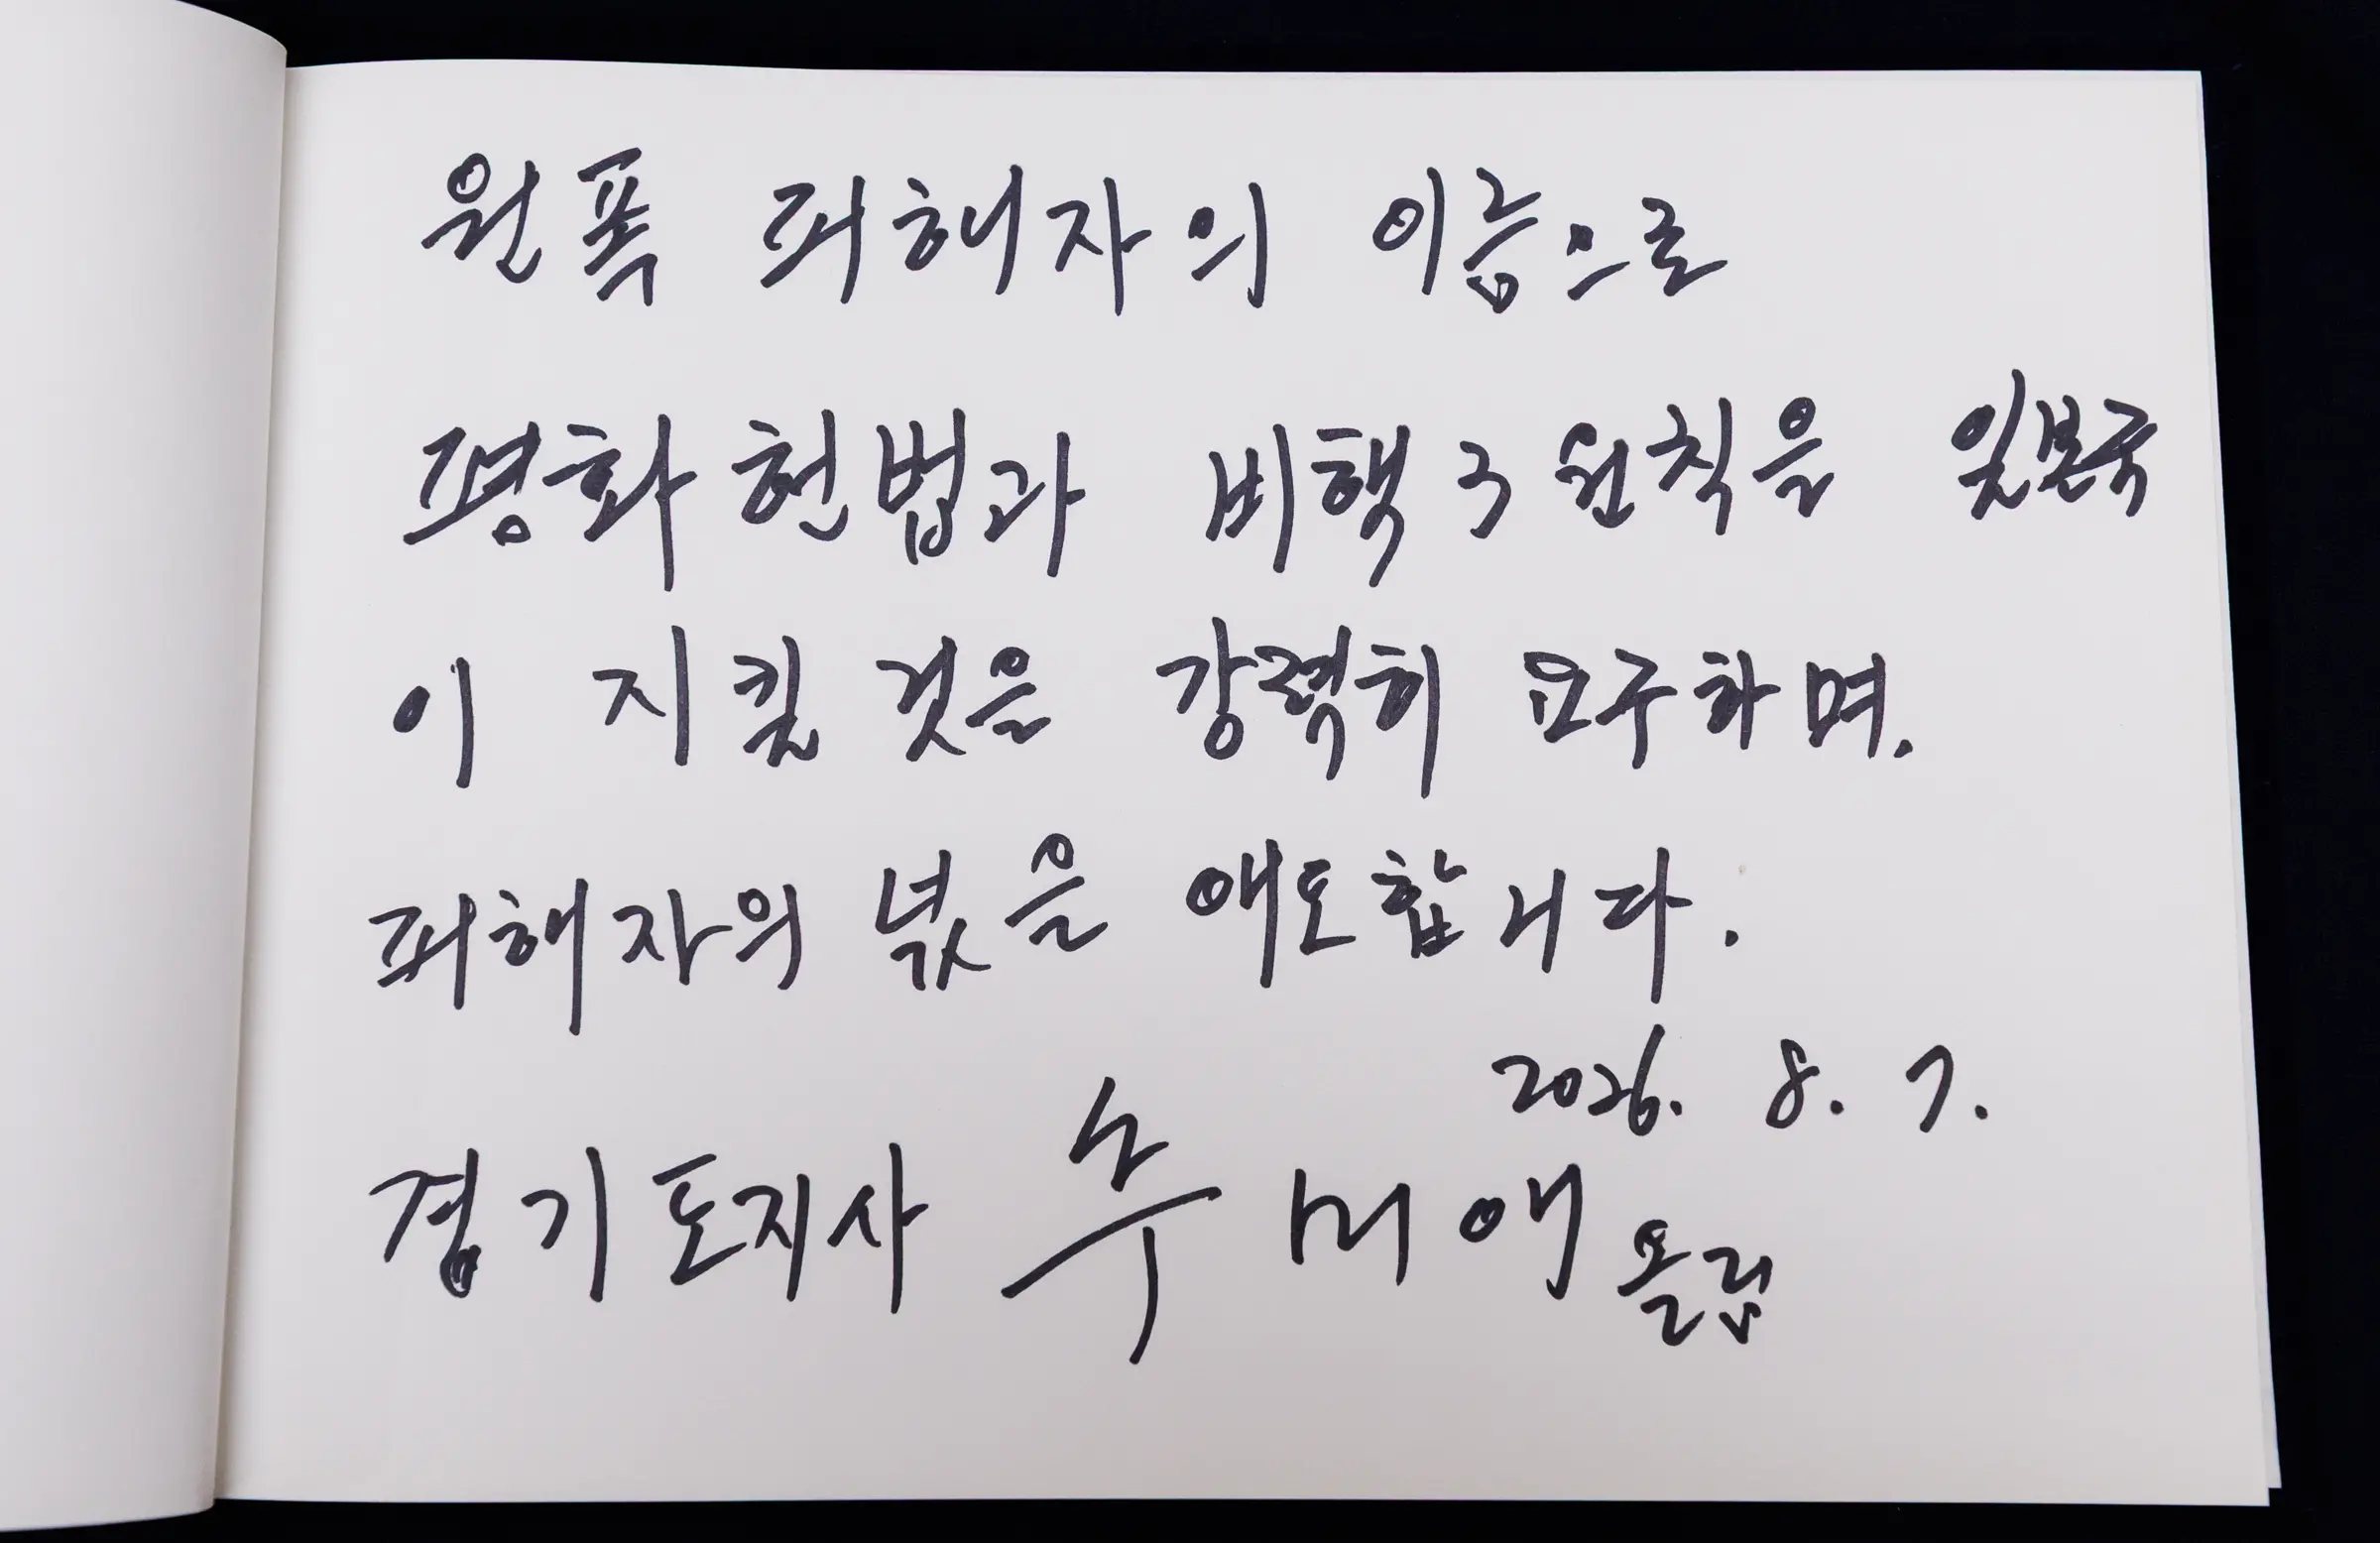 원폭 피해자의 이름으로
평화헌법과 비핵3원칙을 일본국
이 지킬 것을 강력히 요구하며.
피해자의 넋을 애도합니다.
2026. 8. 7.
경기도지사 추미애 올림